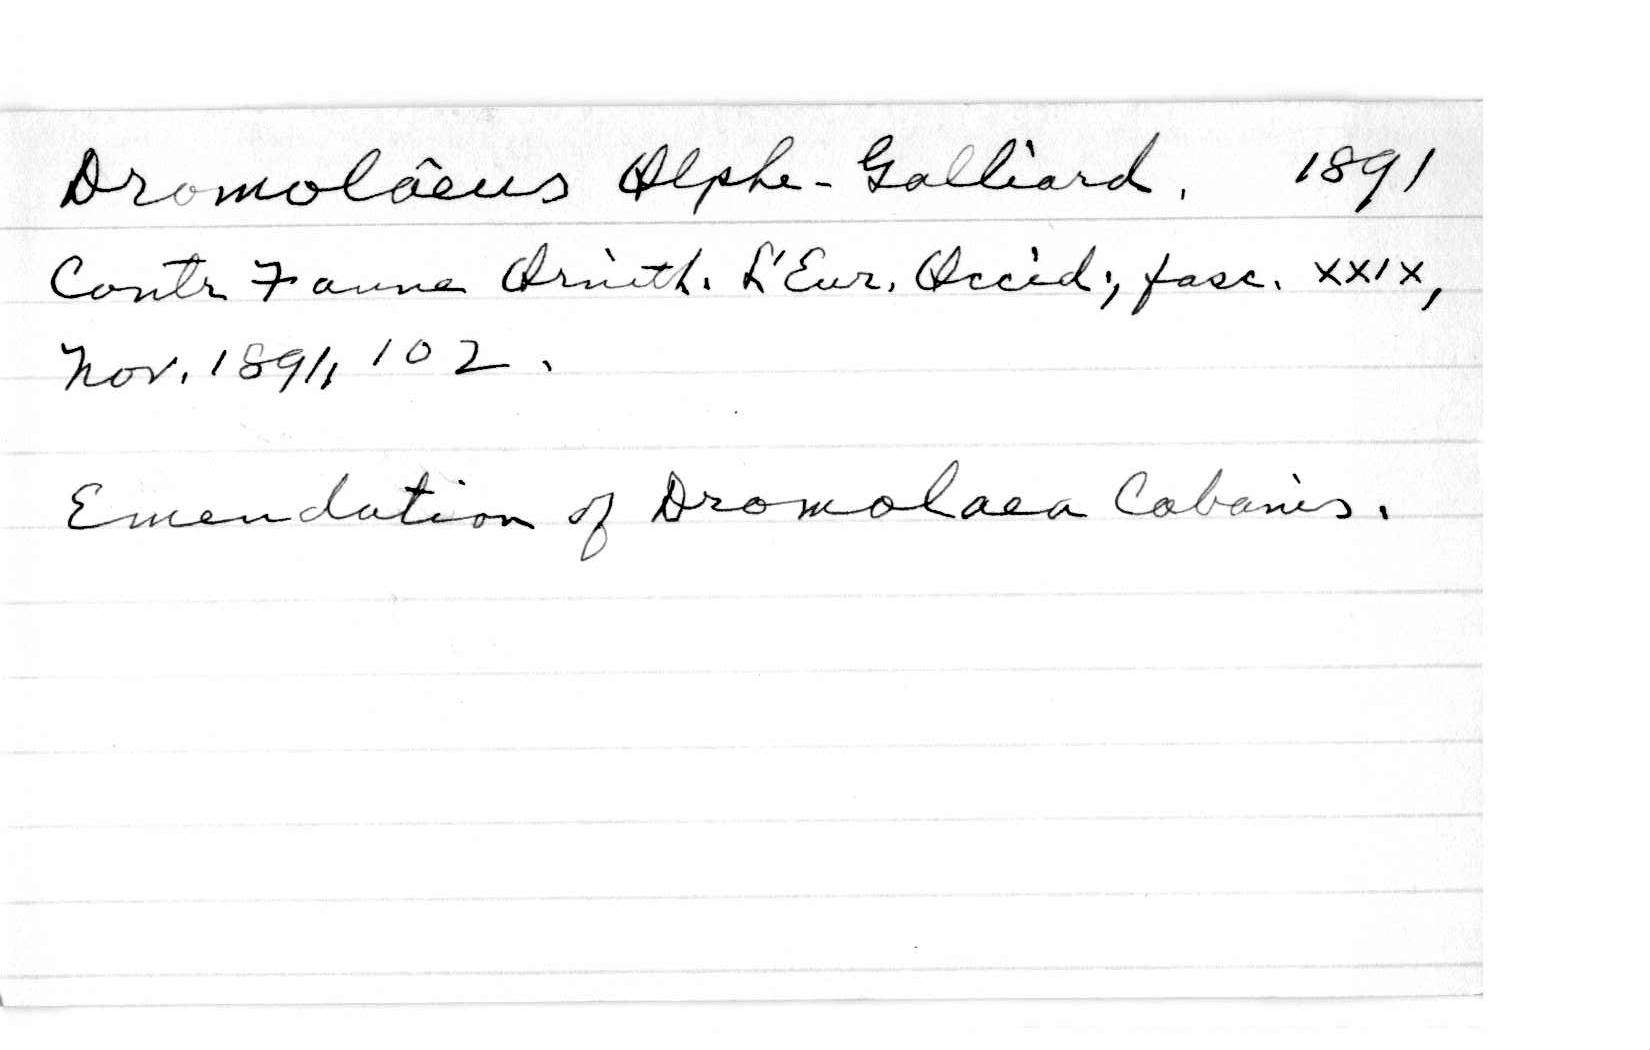 Dromolâeus Alphe-Galliard. 1891
Contr Faune Ornith. L'Eur. Occid; fasc. XXIX,
Nov. 1891, 102.
Emendation of Dromolaea Cabanis.